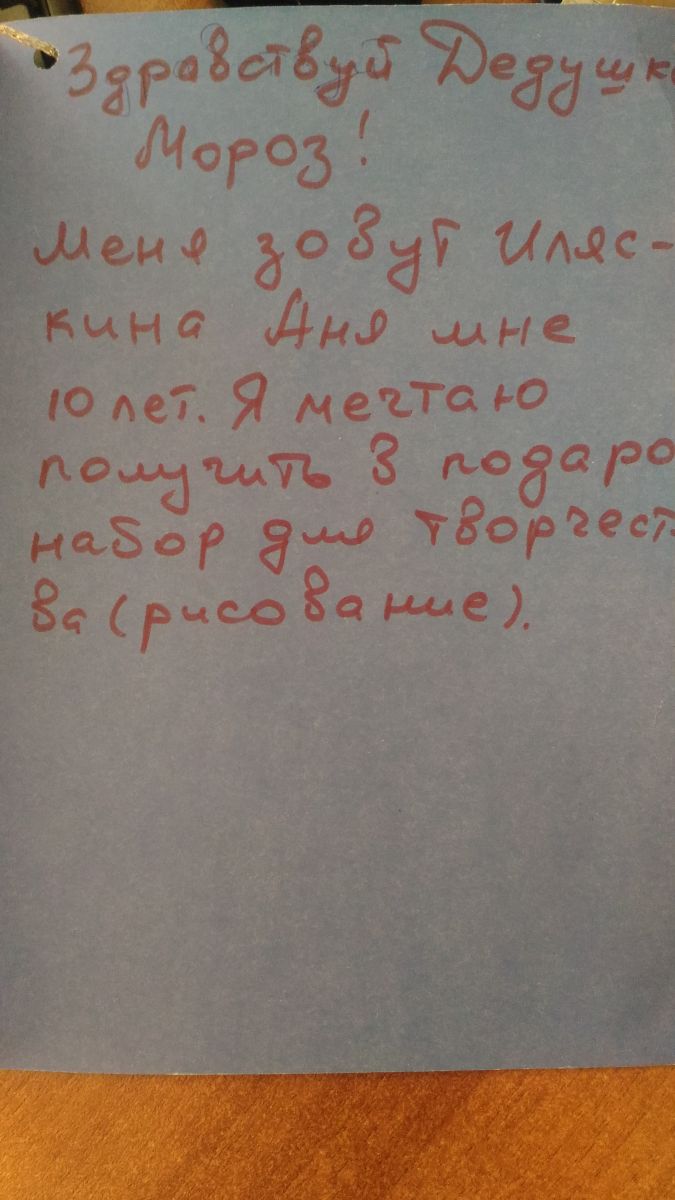 Здравствуй Дедушка
Мороз!
Меня зовут Иляс-
кина Аня мне
10 лет. Я мечтаю
получить 3 подаро
набор для творчест-
ва (рисование).